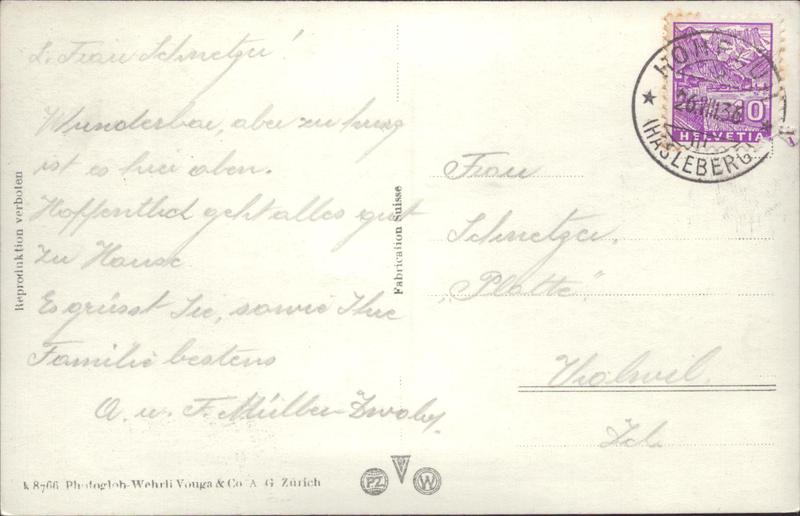 L. Frau Schnetzer!
Wunderbar, aber zu kurz
ist es hier oben.
Hoffentlich geht alles gut
zu Hause
Es grüsst Sie, sowie Ihre
Familie bestens
A. u. F. Müller-
Reproduktion verboten
Fabrication Suisse
HELVETIA
(HASLEBERG)
Frau
Schnetzer,
„Platte",
Zch
8766 Photoglob-Wehrli Vouga & Co A. G. Zürich
PZ
V
W